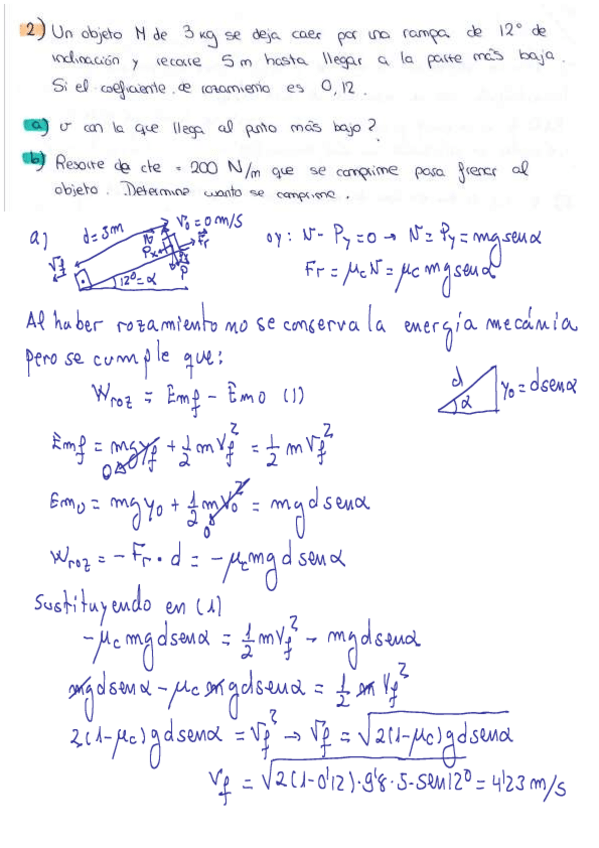 2) Un objeto M de 3 kg se deja caer por una rampa de 12° de
inclinación y recorre 5 m hasta llegar a la parte más baja.
Si el coeficiente de rozamiento es 0,12.
a) v con la que llega al punto más bajo?
b) Resorte de cte = 200 N/m que se comprime para frenar al
objeto. Determina cuanto se comprime.
a) d=5m V₀=0m/S
N Fr Px P 12°=α Vf
oy: N-Py=0 → N=Py=mgsenα
Fr=μcN=μc mgsenα
Al haber rozamiento no se conserva la energía mecánia
pero se cumple que:
Wroz = Emf - Emo (1)
d α y₀=dsenα
Emf = mgyf + 1/2 mVf² = 1/2 mVf²
0
Emo = mgy₀ + 1/2 mV₀² = mgdsenα
0
Wroz = -Fr·d = -μcmgdsenα
Sustituyendo en (1)
-μcmgdsenα = 1/2 mVf² - mgdsenα
mgdsenα - μc mgdsenα = 1/2 m Vf²
2(1-μc)gdsenα = Vf² → Vf = √2(1-μc)gdsenα
Vf = √2(1-0'12)·9'8·5·sen12° = 4'23 m/s